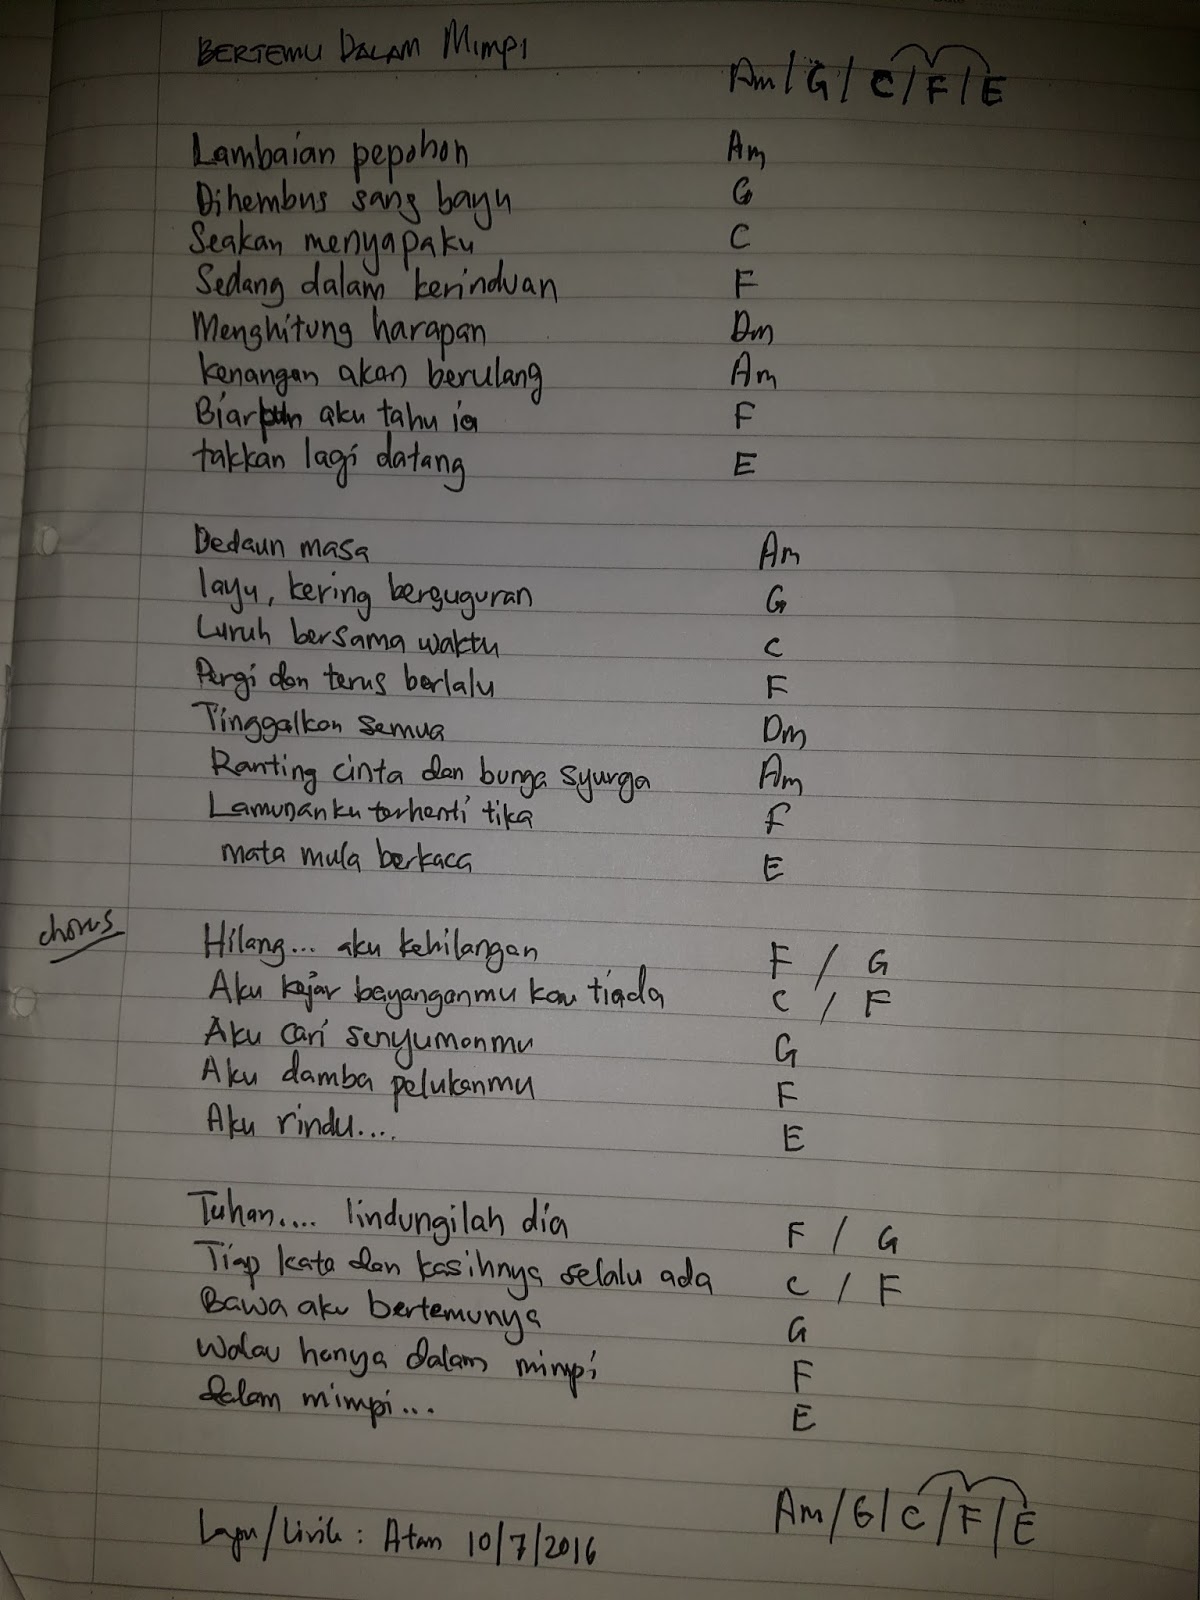 BERTEMU DALAM MIMPI
Am / G / C / F / E
Lambaian pepohon Am
Dihembus sang bayu G
Seakan menyapaku C
Sedang dalam kerinduan F
Menghitung harapan Dm
kenangan akan berulang Am
Biarpun aku tahu ia F
takkan lagi datang E
Dedaun masa Am
layu, kering berguguran G
Luruh bersama waktu C
Pergi dan terus berlalu F
Tinggalkan semua Dm
Ranting cinta dan bunga syurga Am
Lamunanku terhenti tika F
mata mula berkaca E
chorus
Hilang... aku kehilangan F / G
Aku kejar bayanganmu kau tiada C / F
Aku cari senyumanmu G
Aku damba pelukanmu F
Aku rindu.... E
Tuhan.... lindungilah dia F / G
Tiap kata dan kasihnya selalu ada C / F
Bawa aku bertemunya G
Walau hanya dalam mimpi F
dalam mimpi... E
Am / G / C / F / E
Lagu/Lirik : Atan 10/7/2016